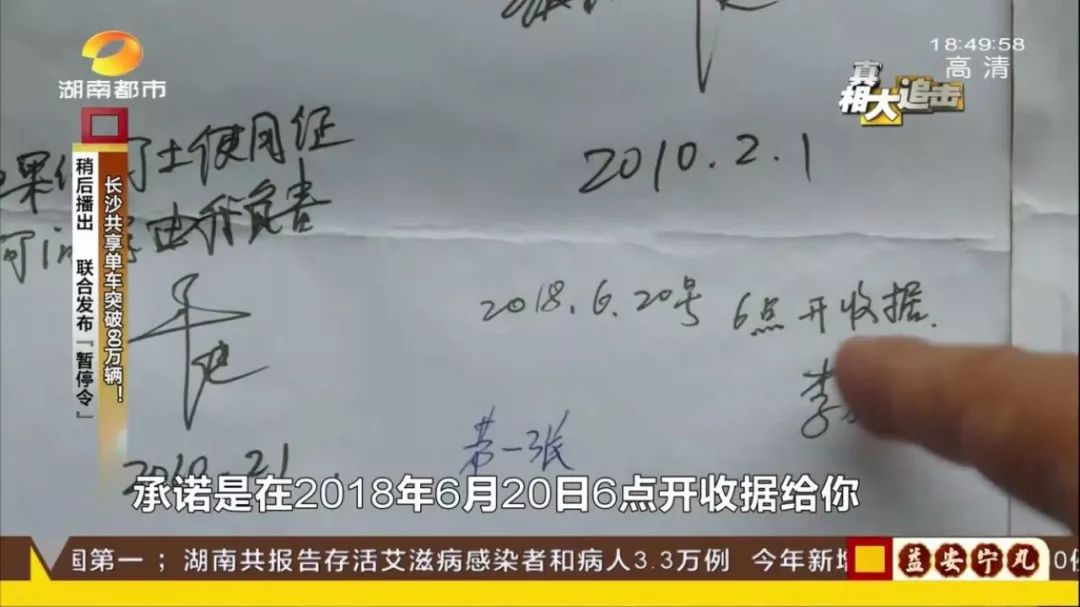 湖南都市
18:49:58
高清
真相大追击
长沙共享单车突破80万辆!
稍后播出 联合发布『暂停令』
土使用证
2010.2.1
由我负责
2018.6.20号 6点开收据.
李
第一张
承诺是在2018年6月20日6点开收据给你
国第一;湖南共报告存活艾滋病感染者和病人3.3万例 今年新增
益安宁丸